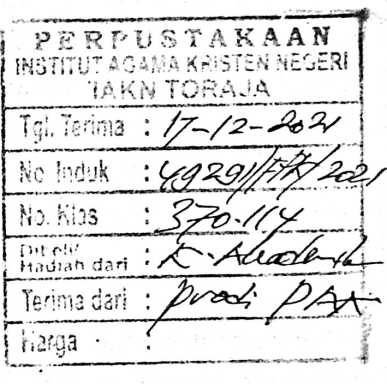 PERPUSTAKAAN
INSTITUT AGAMA KRISTEN NEGERI
IAKN TORAJA
Tgl. Terima : 17-12-2021
No Induk : 4929 2021
No. Klas : 370.114
Hadiah dari : K.
Terima dari : prodi PAK
Harga :